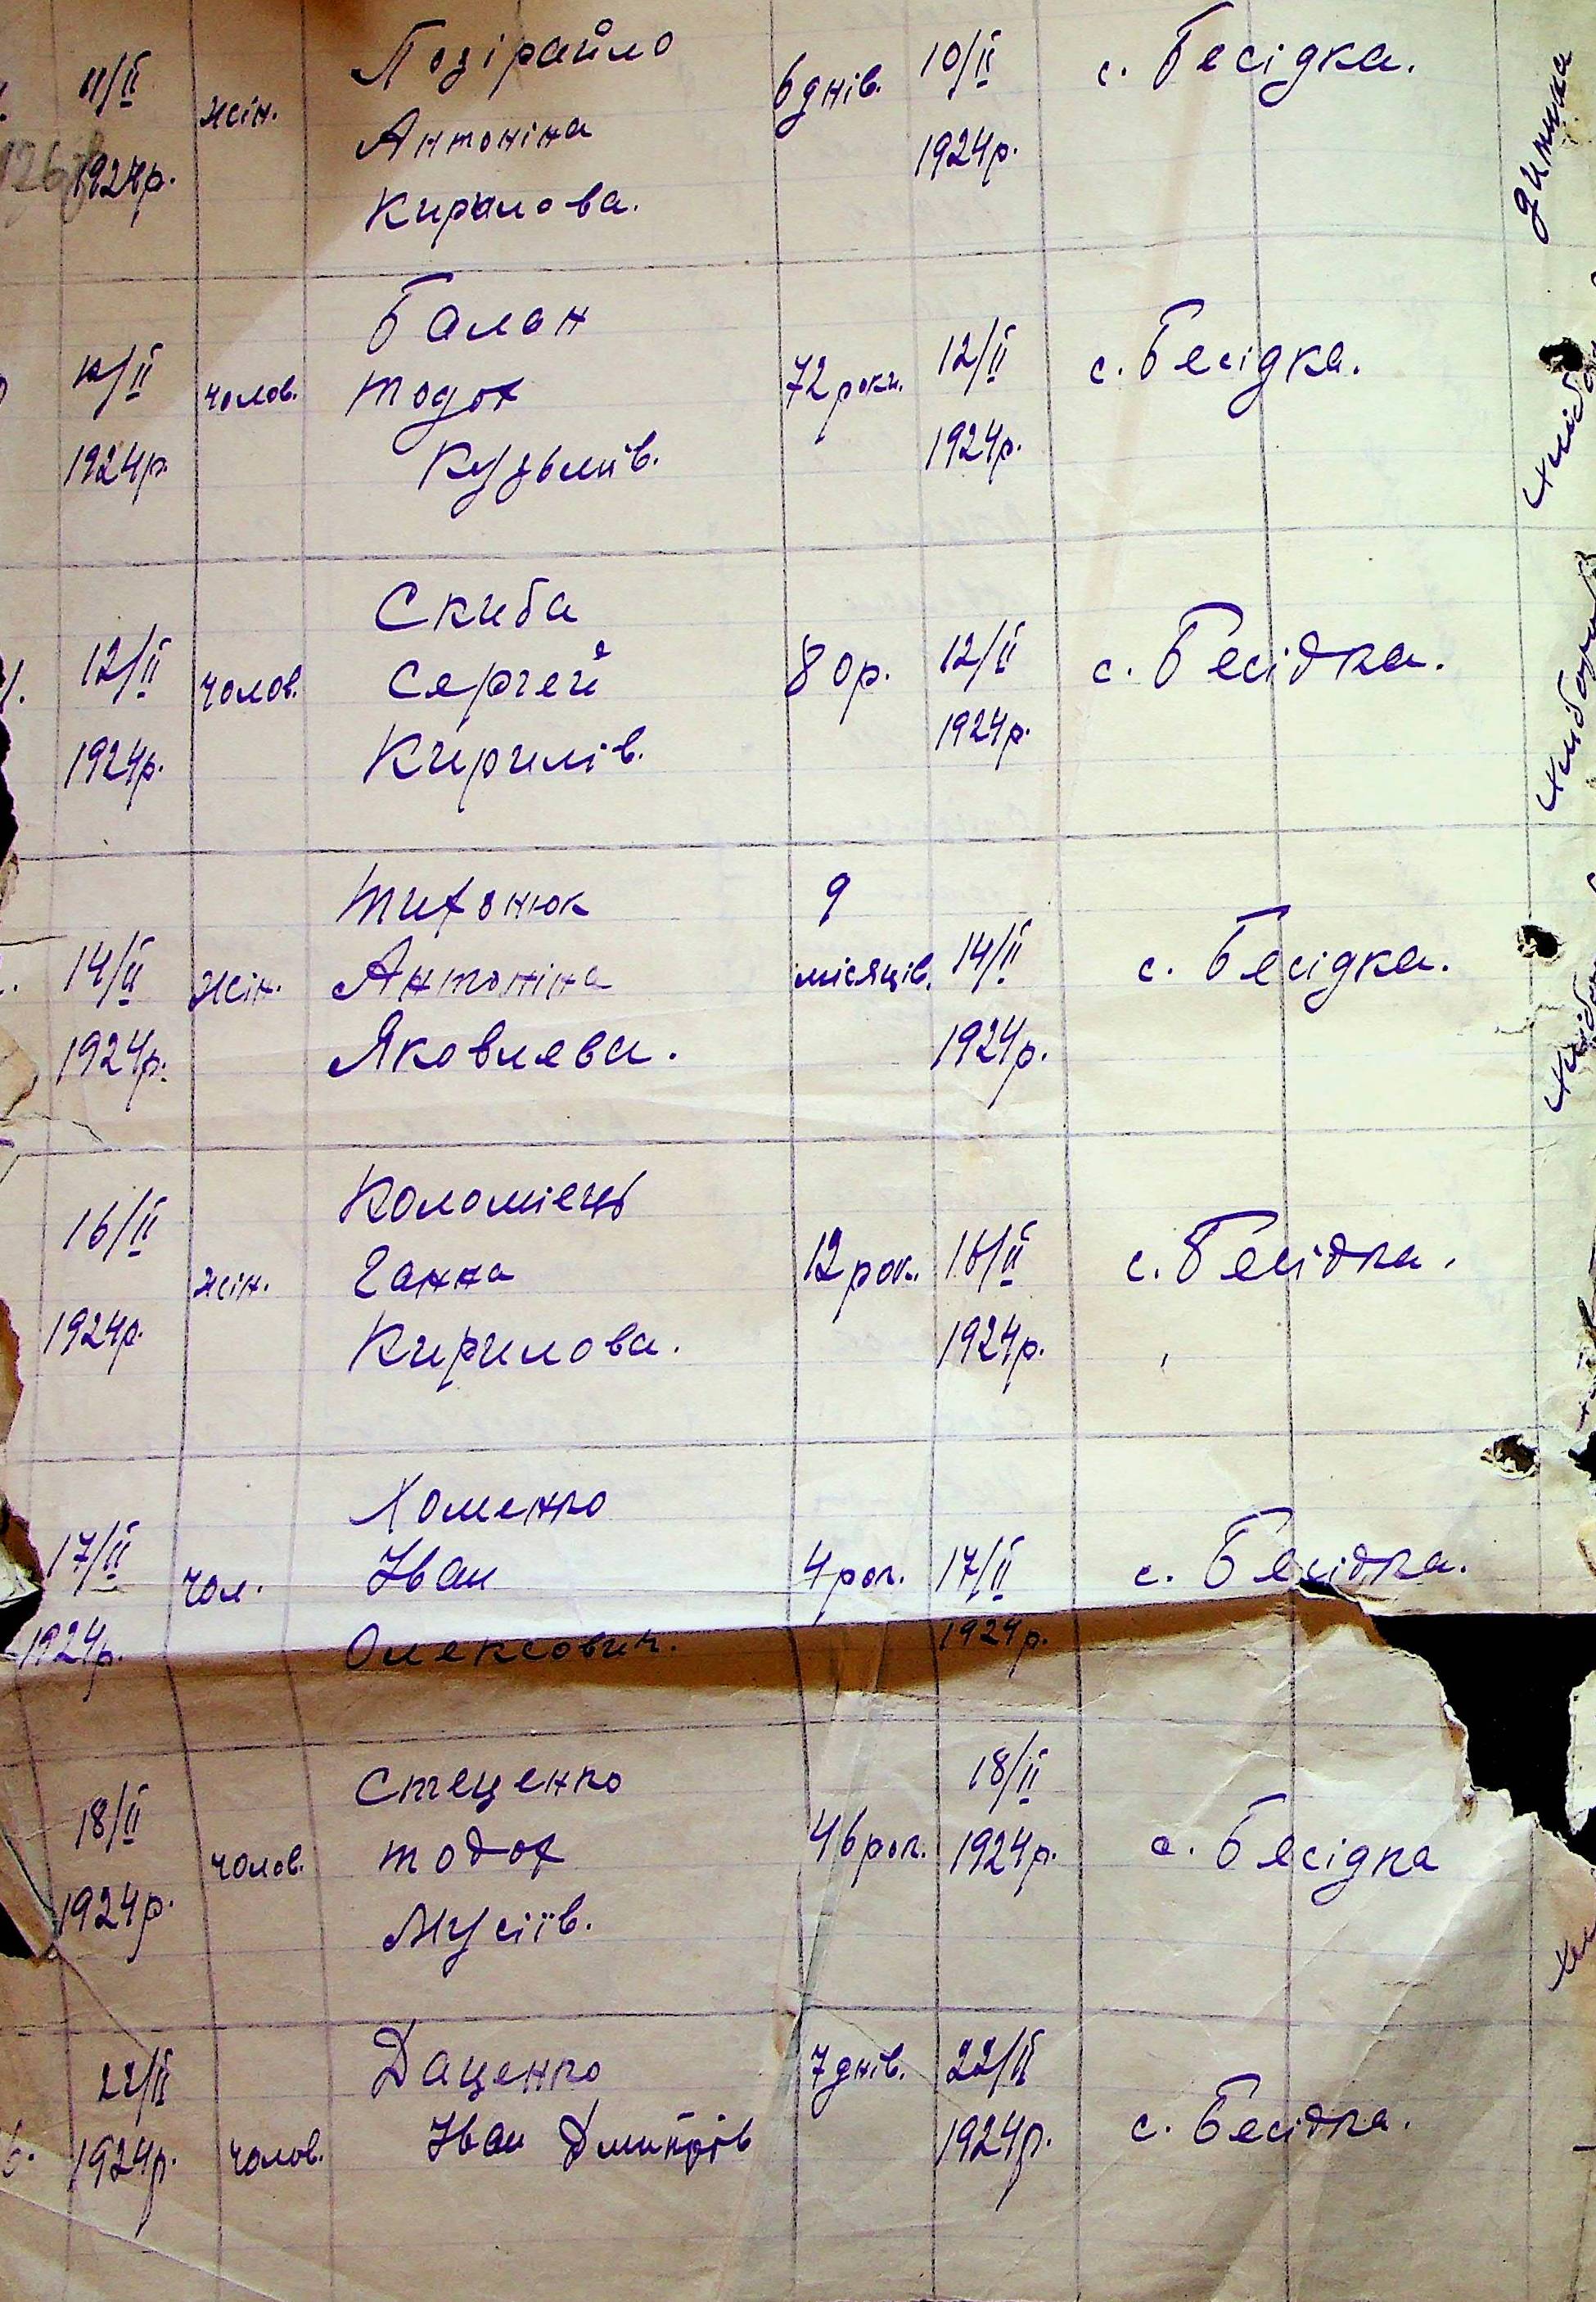 11/II 1924р. жін. Позірайло
Антоніна
Кирилова. 6 днів. 10/II 1924р. с. Бесідка.
12/II 1924р. чолов. Балан
Тодох
Кузьмів. 72 роки. 12/II 1924р. с. Бесідка.
12/II 1924р. чолов. Скиба
Сергей
Кирилів. 80р. 12/II 1924р. с. Бесідка.
14/II 1924р. жін. Тихонюк
Антоніна
Яковлева. 9 місяців. 14/II 1924р. с. Бесідка.
16/II 1924р. жін. Коломіець
Ганна
Кирилова. 12 рок. 16/II 1924р. с. Бесідка.
17/II 1924р. чол. Хоменко
Іван
Олексович. 4 рок. 17/II 1924р. с. Бесідка.
18/II 1924р. чолов. Стеценко
Тодох
Мусіїв. 46 рок. 18/II 1924р. с. Бесідка
22/II 1924р. чолов. Даценко
Іван Дмитрів 7 днів. 22/II 1924р. с. Бесідка.